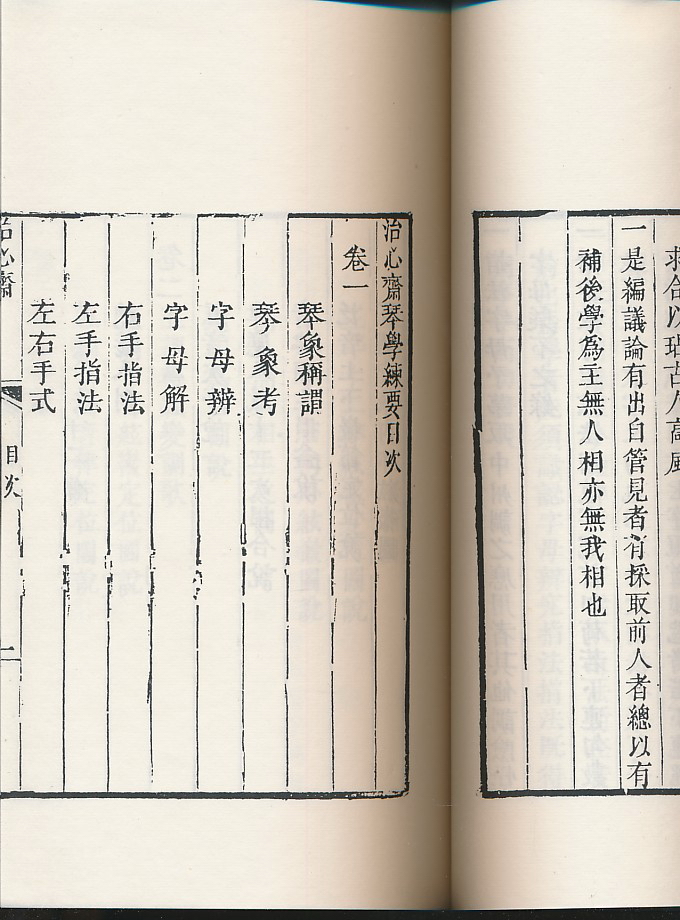 合以玷古人高風
一是編議論有出自管見者有採取前人者總以有
補後學為主無人相亦無我相也
治心齋琴學練要目次
卷一
琴象稱謂
琴象考
字母辨
字母解
右手指法
左手指法
左右手式
治心齋
目次